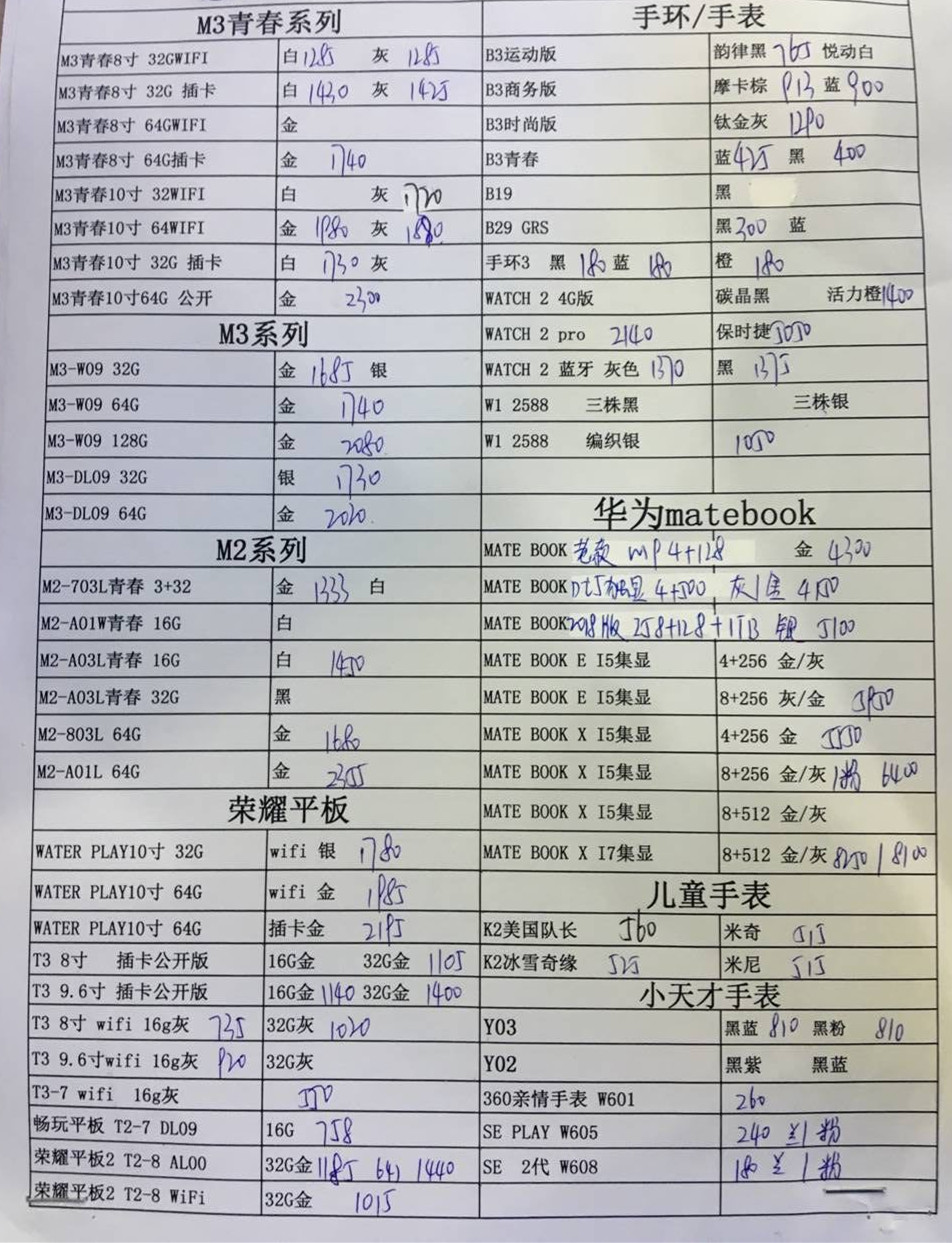 M3青春系列
M3青春8寸 32GWIFI 白1285 灰 1285
M3青春8寸 32G 插卡 白 1430 灰 1425
M3青春8寸 64GWIFI 金
M3青春8寸 64G插卡 金 1740
M3青春10寸 32WIFI 白 灰 1720
M3青春10寸 64WIFI 金 1980 灰
M3青春10寸 32G 插卡 白 1730 灰
M3青春10寸64G 公开 金 2300
M3系列
M3-W09 32G 金 1685 银
M3-W09 64G 金 1740
M3-W09 128G 金 2080
M3-DL09 32G 银 1730
M3-DL09 64G 金 2020
M2系列
M2-703L青春 3+32 金 1333 白
M2-A01W青春 16G 白
M2-A03L青春 16G 白 1450
M2-A03L青春 32G 黑
M2-803L 64G 金 1680
M2-A01L 64G 金 2355
荣耀平板
WATER PLAY10寸 32G wifi 银 1780
WATER PLAY10寸 64G wifi 金 1985
WATER PLAY10寸 64G 插卡金 2195
T3 8寸 插卡公开版 16G金 32G金 1105
T3 9.6寸 插卡公开版 16G金 1140 32G金 1400
T3 8寸 wifi 16g灰 735 32G灰 1020
T3 9.6寸wifi 16g灰 920 32G灰
T3-7 wifi 16g灰 550
畅玩平板 T2-7 DL09 16G 758
荣耀平板2 T2-8 AL00 32G金 1185 64) 1440
荣耀平板2 T2-8 WiFi 32G金 1015
手环/手表
B3运动版 韵律黑 765 悦动白
B3商务版 摩卡棕 913 蓝 900
B3时尚版 钛金灰 1290
B3青春 蓝425 黑 400
B19 黑
B29 GRS 黑300 蓝
手环3 黑 180 蓝 180 橙 180
WATCH 2 4G版 碳晶黑 活力橙1400
WATCH 2 pro 2140 保时捷5050
WATCH 2 蓝牙 灰色 1370 黑 1375
W1 2588 三株黑 三株银
W1 2588 编织银 1050
华为matebook
MATE BOOK 老款 4+128 金 4300
MATE BOOK 4+500 灰/金 4150
MATE BOOK 2018版 258+128+1TB 银 5100
MATE BOOK E I5集显 4+256 金/灰
MATE BOOK E I5集显 8+256 灰/金 5950
MATE BOOK X I5集显 4+256 金 5550
MATE BOOK X I5集显 8+256 金/灰/粉 6400
MATE BOOK X I5集显 8+512 金/灰
MATE BOOK X I7集显 8+512 金/灰 8250 / 8100
儿童手表
K2美国队长 560 米奇 515
K2冰雪奇缘 525 米尼 515
小天才手表
Y03 黑蓝 810 黑粉 810
Y02 黑紫 黑蓝
360亲情手表 W601 260
SE PLAY W605 240 兰/粉
SE 2代 W608 180 兰/粉